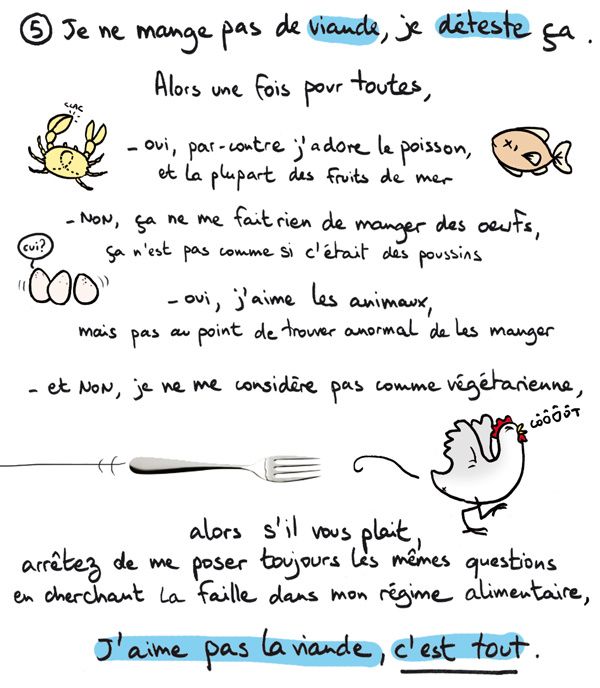 ⑤ Je ne mange pas de viande, je déteste ça.
Alors une fois pour toutes,
CLAC
- oui, par-contre j'adore le poisson,
et la plupart des fruits de mer
- NON, ça ne me fait rien de manger des oeufs,
ça n'est pas comme si c'était des poussins
cui?
- oui, j'aime les animaux,
mais pas au point de trouver anormal de les manger
- et NON, je ne me considère pas comme végétarienne,
CÔÔÔÔT
alors s'il vous plait,
arrêtez de me poser toujours les mêmes questions
en cherchant la faille dans mon régime alimentaire,
J'aime pas la viande, c'est tout.